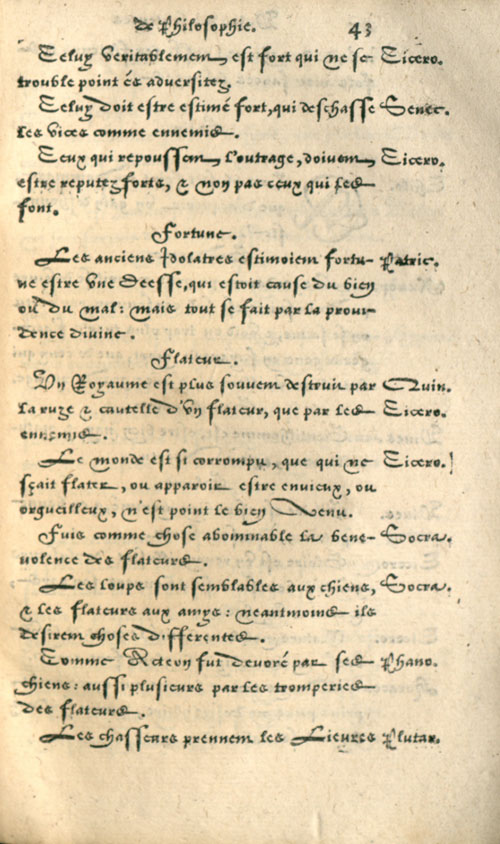 de Philosophie. 43
Celuy veritablement est fort qui ne se Cicero.
trouble point és adversitez.
Celuy doit estre estimé fort, qui deschasse Senec.
les vices comme ennemis.
Ceux qui repoussent l'outrage, doivent Cicero.
estre reputez forts, & non pas ceux qui les
font.
Fortune.
Les anciens Idolatres estimoient fortu- Patric.
ne estre une Deesse, qui estoit cause du bien
ou du mal: mais tout se fait par la provi
dence divine.
Flateur.
Un Royaume est plus souvent destruit par Quin.
la ruze & cautelle d'un flateur, que par les Cicero.
ennemis.
Le monde est si corrompu, que qui ne Cicero.
sçait flater, ou apparoir estre envieux, ou
orgueilleux, n'est point le bien Venu.
Fuis comme chose abominable la bene- Socra.
volence des flateurs.
Les loups sont semblables aux chiens, Socra.
& les flateurs aux amys: neantmoins ils
desirent choses differentes.
Comme Acteon fut devoré par ses Phano.
chiens: aussi plusieurs par les tromperies
des flateurs.
Les chasseurs prennent les Lievres Plutar.